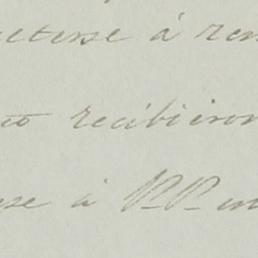 eterse á ren
to recibieron
se á PP. en